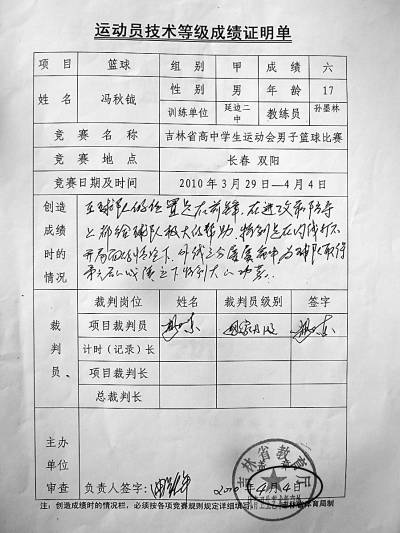 运动员技术等级成绩证明单
项目 篮球 组别 甲 成绩 六
姓名 冯秋钺 性别 男 年龄 17
训练单位 延边二中 教练员 孙墨林
竞赛名称 吉林省高中学生运动会男子篮球比赛
竞赛地点 长春 双阳
竞赛日期及时间 2010年3月29—4月4日
创造成绩时的情况
在球队的位置是在前锋,在进攻和防守
上都给球队极大的帮助,特别是在内线打不
开局面的情况下,外线三分屡屡命中,为球队取得
裁判员
裁判岗位 姓名 裁判员级别 签字
项目裁判员 国家
计时(记录)长
项目裁判长
总裁判长
主办单位审查
负责人签字:
2010年4月4日
吉林省教育厅
注:创造成绩时的情况栏,必须按各项竞赛规则规定详细填写
吉林省教育局制